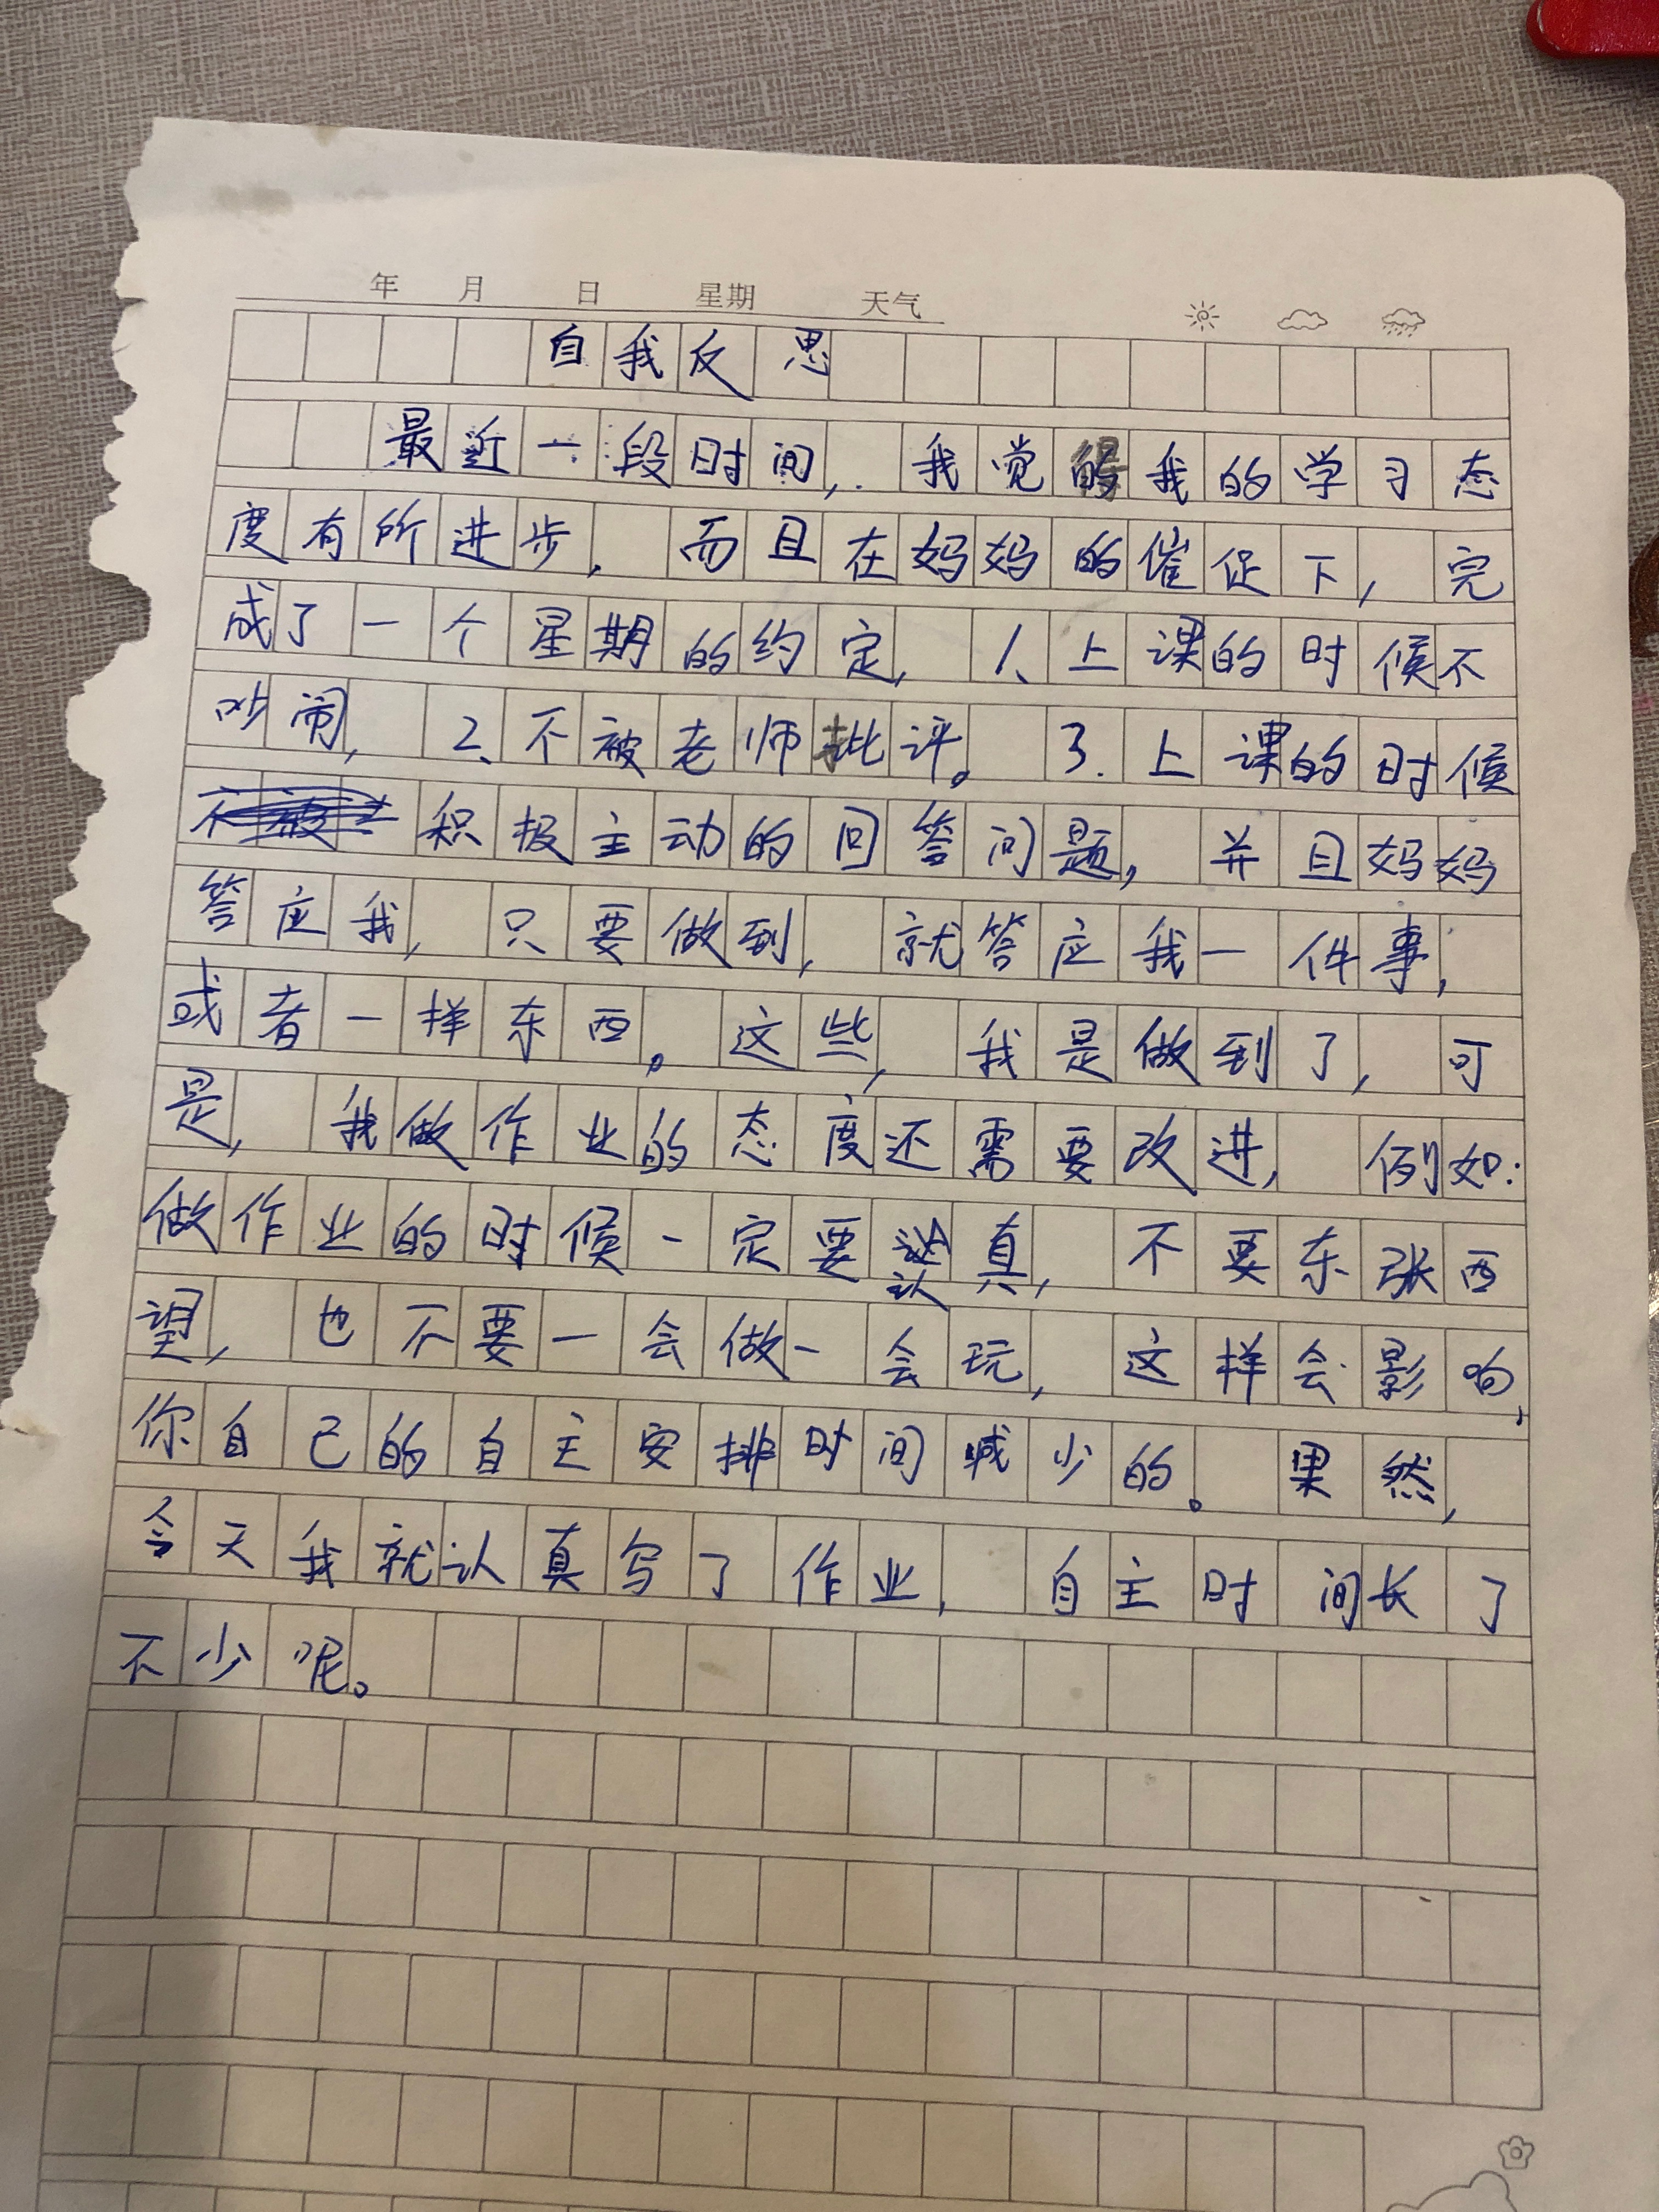 年 月 日 星期 天气
自我反思
最近一段时间，我觉得我的学习态
度有所进步，而且在妈妈的催促下，完
成了一个星期的约定，1、上课的时候不
吵闹，2、不被老师批评。3.上课的时候
积极主动的回答问题，并且妈妈
答应我，只要做到，就答应我一件事，
或者一样东西。这些，我是做到了，可
是，我做作业的态度还需要改进，例如：
做作业的时候一定要认真，不要东张西
望，也不要一会做一会玩，这样会影响，
你自己的自主安排时间减少的。果然，
今天我就认真写了作业，自主时间长了
不少呢。